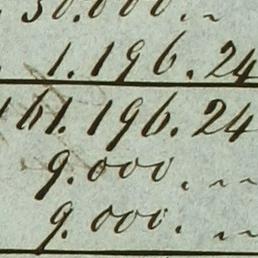 30.000. „
1.196.24
161.196.24
9.000. „
9.000. „